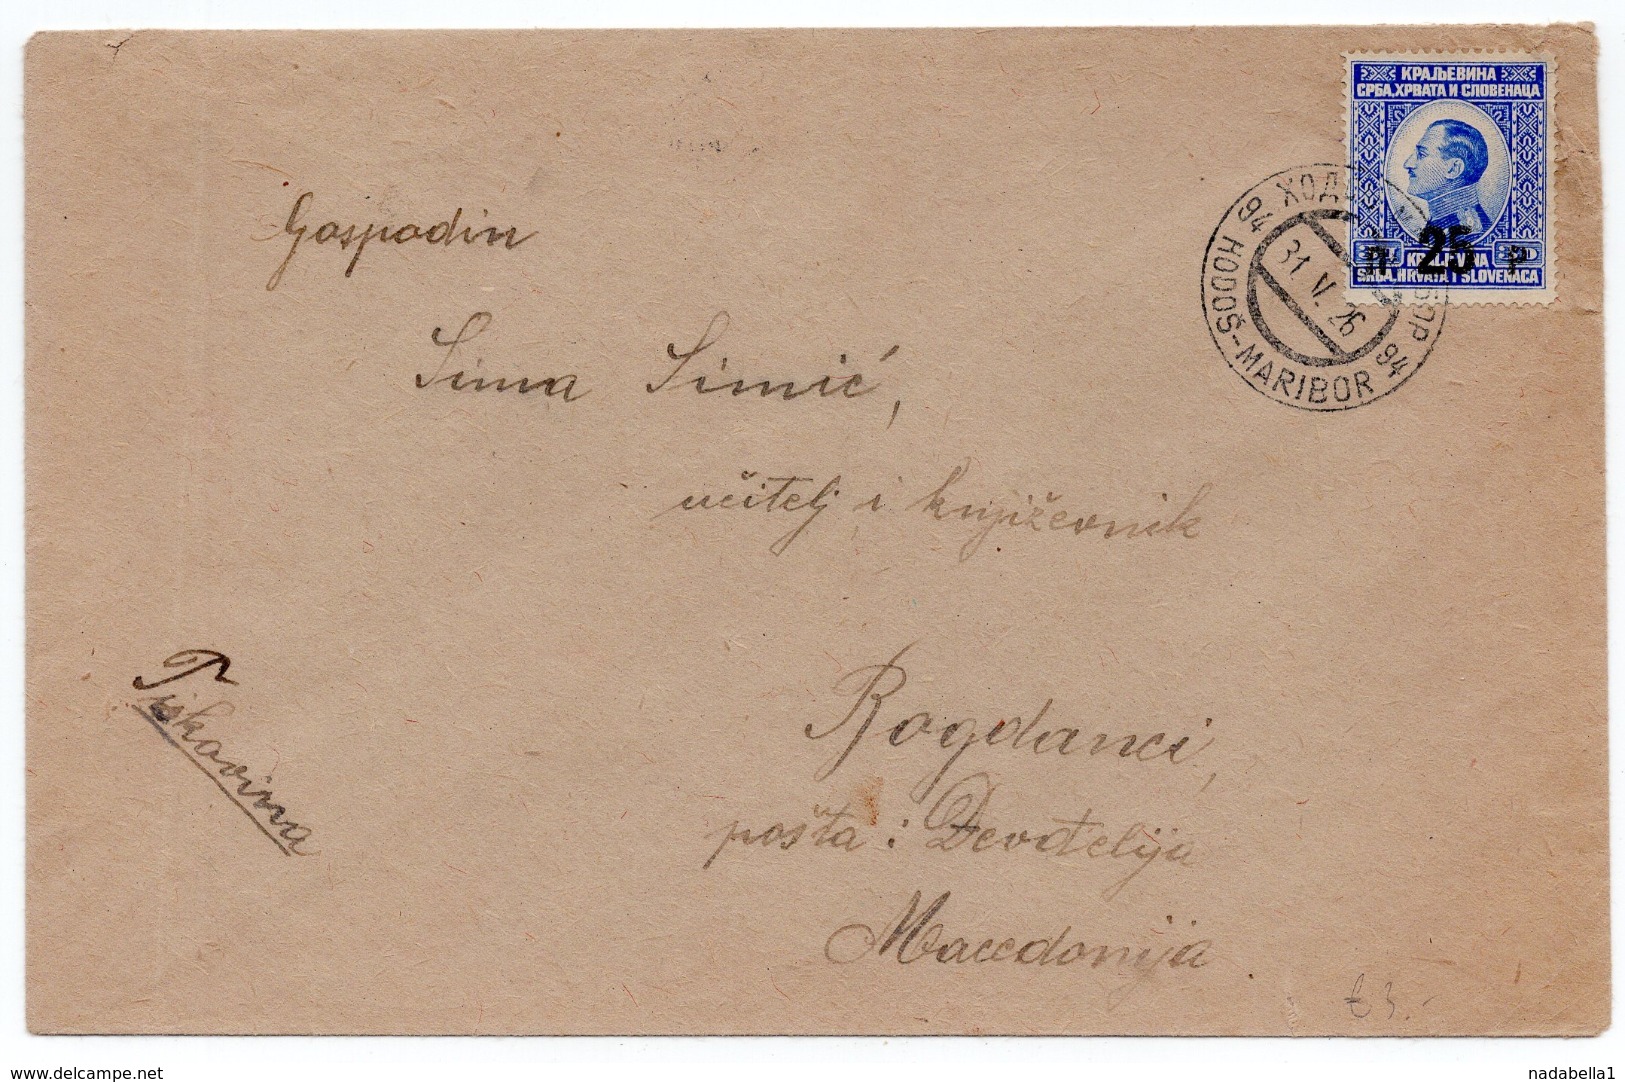 КРАЉЕВИНА
СРБА, ХРВАТА И СЛОВЕНАЦА
П 25 Р
KRALJEVINA
SRBA, HRVATA I SLOVENACA
94 HODOŠ-MARIBOR 94
31 V. 26
Gospodin
Sima Simić,
učitelj i književnik
Tiskovina
Bogdanci,
pošta: Đevđelija
Maccedonija
€ 3.-
www.delcampe.net
nadabella1